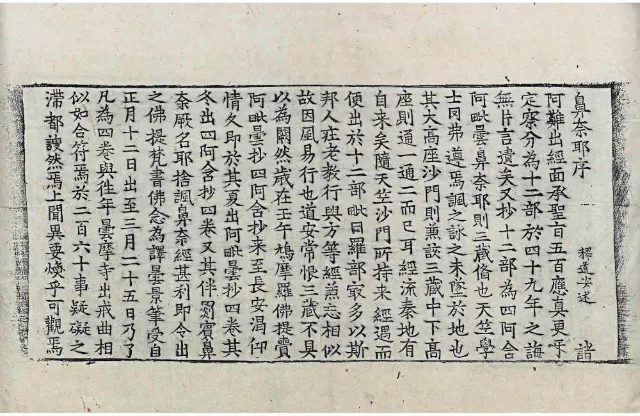 鼻奈耶序 釋道安述 諸
阿難出經面承聖旨五百應真更互
定察分為十二部於四十九年之誨
無片言遺矣又抄十二部為四阿含
阿毗曇鼻奈耶則三藏俻也天竺學
士罔弗遵焉諷之詠之未墜於地也
其大高座沙門則兼該三藏中下髙
座則通一通二而已耳經流秦地有
自来矣隨天竺沙門所持来經遇而
便出於十二部毗日羅部㝡多以斯
邦人在老教行與方等經兼忘相似
故因風易行也道安常恨三藏不具
以為闕然歳在壬午鳩摩羅佛提賷
阿毗曇抄四阿含抄来至長安渴仰
情久即於其夏出阿毗曇抄四卷其
冬出四阿含抄四卷又其伴罽賓鼻
奈厥名耶捨諷鼻奈經甚利即令出
之佛提梵書佛念為譯曇景筆受自
正月十二日出至三月二十五日乃了
凡為四卷與往年曇摩寺出戒曲相
似如合符焉於二百六十事疑礙之
滯都謏然焉上聞異要煥乎可觀焉